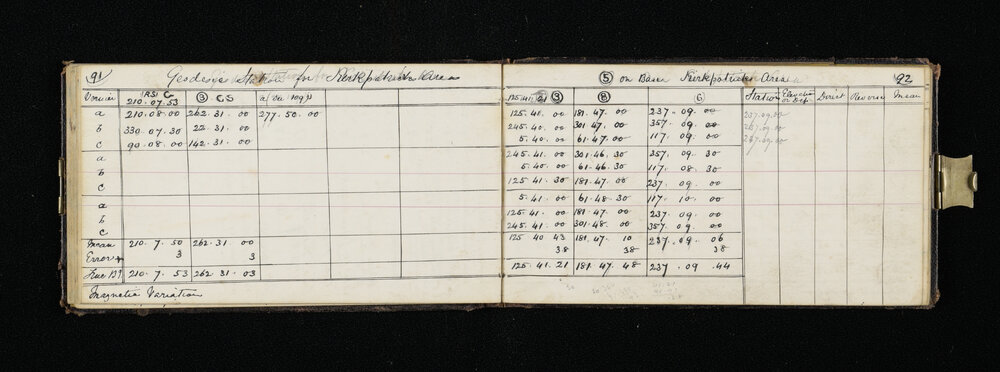 91
Geodesic Station for Kirkpatrick Area
Vernier RSI G ③ CS
210.07.53
a 210.08.00 262.31.00 277.50.00
b 330.07.30 22.31.00
c 90.08.00 142.31.00
a
b
c
a
b
c
Mean 210.7.50 262.31 00
Error + 3 3
True Bg 210.7.53 262.31.03
Magnetic Variation
⑤ on Base Kirkpatrick Area 92
125.41.21 ③ ⑧ ⑥ Station Elevation or Dep Direct Reverse Mean
125.41.00 181.47.00 237.09.00 237.09.00
245.40.00 301.47.00 357.09.00 237.09.00
5.40.00 61.47.00 117.09.00 237.09.00
245.41.00 301.46.30 357.09.30
5.40.00 61.46.30 117.08.30
125.41.30 181.47.00 237.09.00
5.41.00 61.48.30 117.10.00
125.41.00 181.47.00 237.09.00
245.41.00 301.48.00 357.09.00
125 40 43 181.47.10 237.09.06
38 38 38
125.41.21 181.47.48 237.09.44